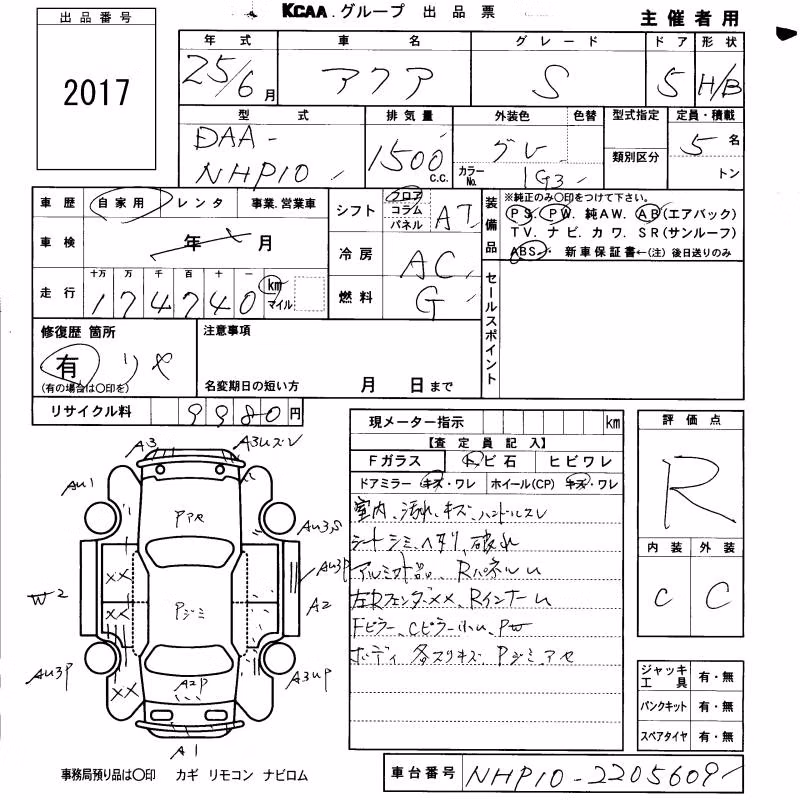 KCAA グループ 出品票
主催者用
出品番号
2017
年式 車名 グレード ドア 形状
25/6月 アクア S 5 H/B
型式 排気量 外装色 色替 型式指定 定員・積載
DAA-NHP10 1500 c.c. グレ カラーNo. 1G3 類別区分 5名 トン
車歴 自家用 レンタ 事業.営業車
シフト フロア コラム パネル AT
装備品 ※純正のみ○印をつけて下さい。
PS. PW. 純AW. AB(エアバック)
TV. ナビ. カワ. SR(サンルーフ)
ABS. 新車保証書←(注) 後日送りのみ
車検 年 月
冷房 AC
走行 十万 万 千 百 十 一
174740 km マイル
燃料 G
セールスポイント
修復歴 箇所
有 リヤ
(有の場合は○印を)
注意事項
名変期日の短い方 月 日まで
リサイクル料 9980円
現メーター指示 km
【査定員記入】
Fガラス トビ石 ヒビワレ
ドアミラー キズ・ワレ ホイール(CP) キズ・ワレ
室内、汚れ、キズ、ハンドルスレ
シートシミ、ヘタリ、破れ
アルミ社品、RパネルU
左RフェンダXX、RインナーU
Fピラー、Cピラー小U、PW
ボディ 各スリキズ Pジミ、アセ
評価点
R
内装 外装
C C
A3 A3Uスレ
AU1
Pアセ
AU3,S
XX
AU3P
W2
XX
Pジミ
A2
AU3P
XX
A2P
A3UP
A1
ジャッキ工具 有・無
パンクキット 有・無
スペアタイヤ 有・無
事務局預り品は○印 カギ リモコン ナビロム
車台番号 NHP10-2205609